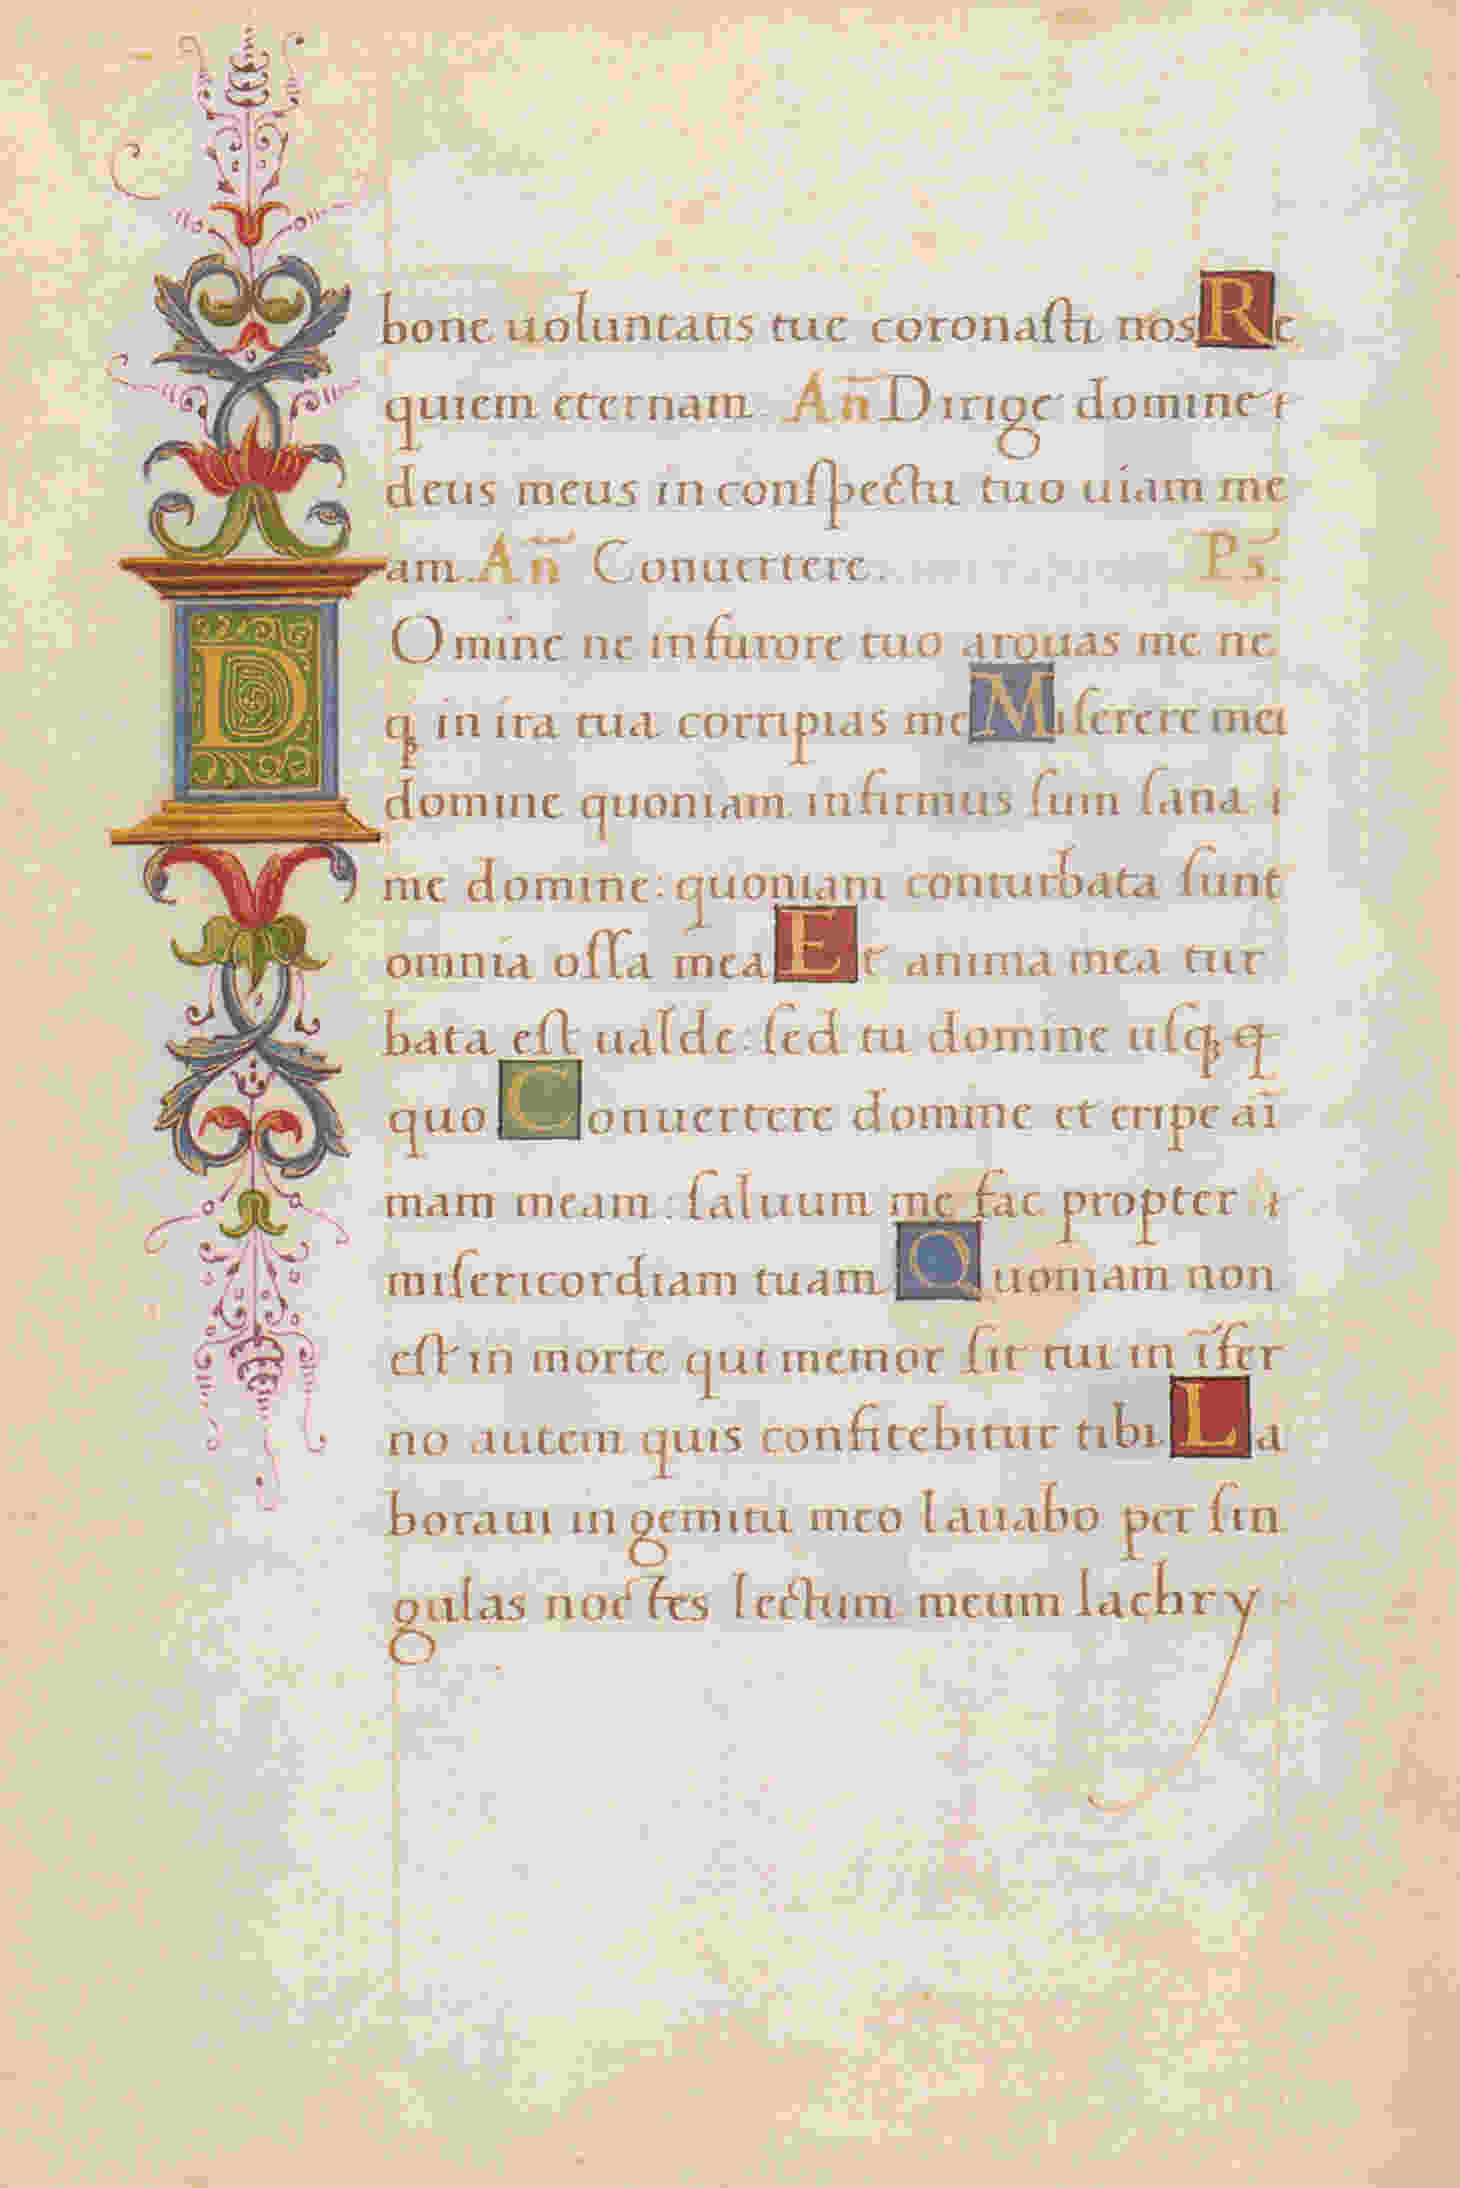 bone uoluntatis tue coronaſti nos Re
quiem eternam. Añ Dirige domine
deus meus in conſpectu tuo uiam me
am. Añ Conuertere. Ps̄.
DOmine ne in furore tuo arguas me ne
qꝫ in ira tua corripias me Miſerere mei
domine quoniam infirmus ſum ſana
me domine: quoniam conturbata ſunt
omnia oſſa mea Et anima mea tur
bata eſt ualde: ſed tu domine uſqꝫ q̄
quo Conuertere domine et eripe aī
mam meam: ſaluum me fac propter
miſericordiam tuam Quoniam non
eſt in morte qui memor ſit tui in īfer
no autem quis confitebitur tibi. La
boraui in gemitu meo lauabo per ſin
gulas noctes lectum meum lachry